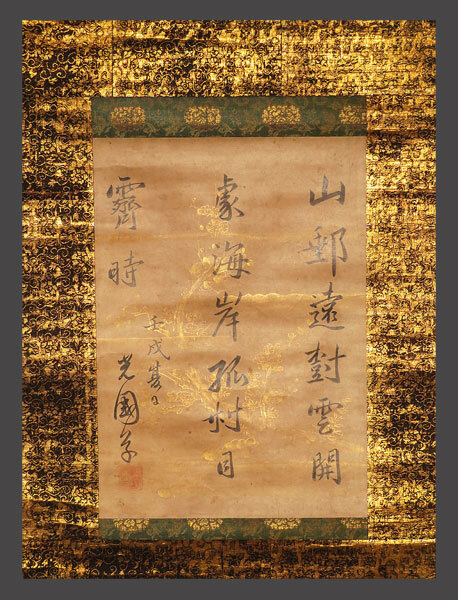 山郵遠對雲開
處海岸孤村日
霽時
壬戌春日
光國